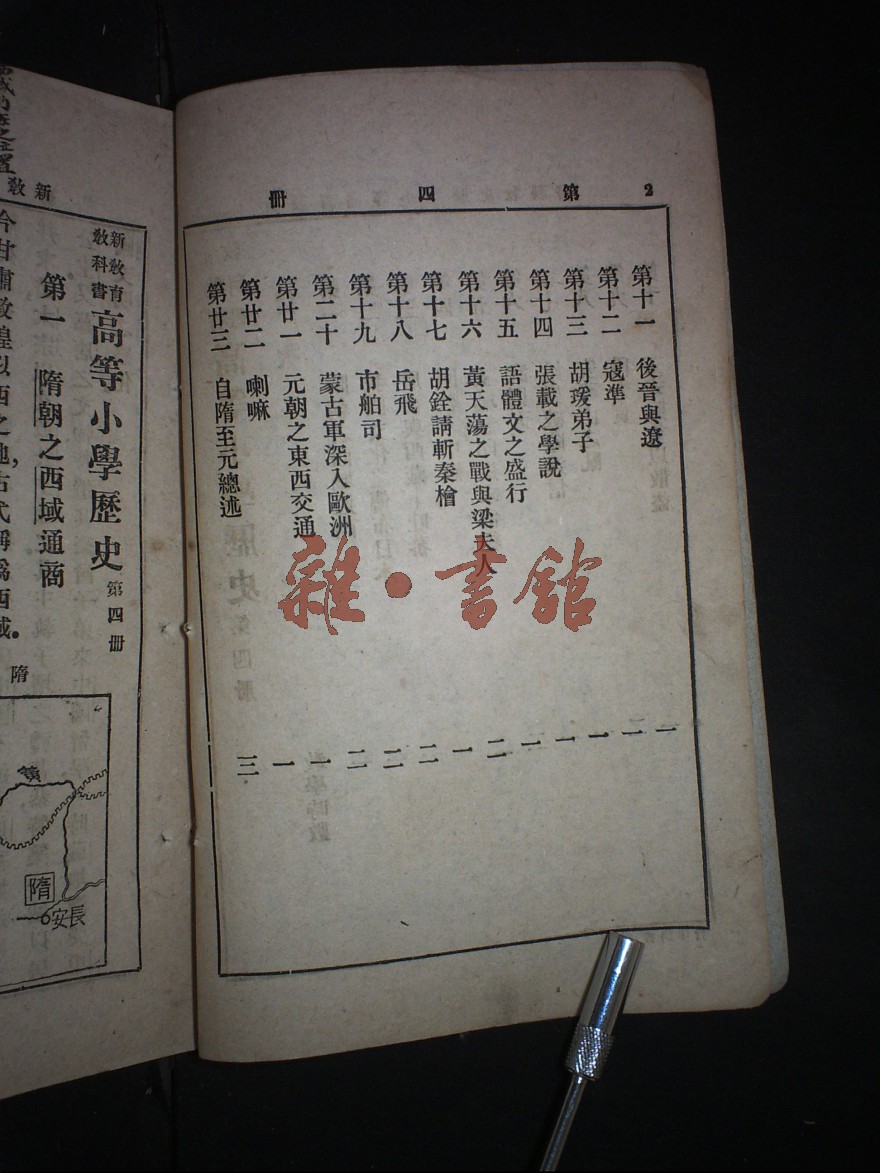 2 第四冊
第十一 後晉與遼 一
第十二 寇準 二
第十三 胡瑗弟子 一
第十四 張載之學說 一
第十五 語體文之盛行 一
第十六 黃天蕩之戰與梁夫人 二
第十七 胡銓請斬秦檜 一
第十八 岳飛 二
第十九 市舶司 二
第二十 蒙古軍深入歐洲 二
第廿一 元朝之東西交通 一
第廿二 喇嘛 一
第廿三 自隋至元總述 三
雜·書館
新教
新教育教科書 高等小學歷史 第四冊
第一 隋朝之西域通商
今甘肅敦煌以西之地，古代稱爲西域。
隋
黃
隋
長安